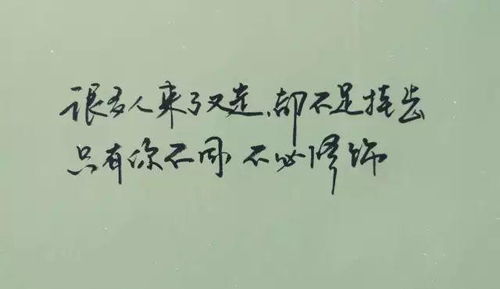 很多人来了又走,都不足挂齿
只有你不同 不必修饰